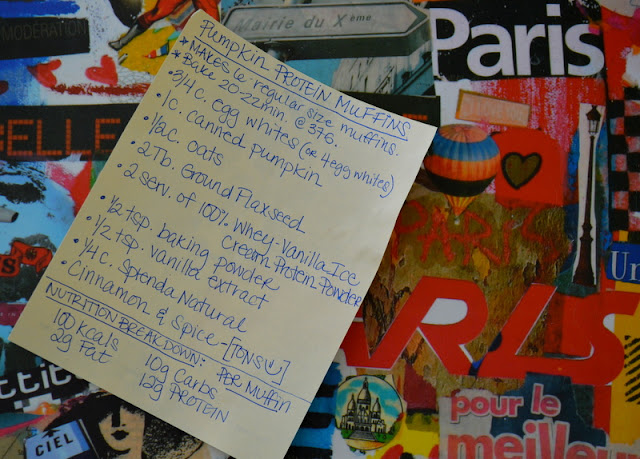 MODERATION
Mairie du Xème
Paris
BELLE
Pumpkin PROTEIN MUFFINS
* MAKES 6 regular size muffins.
* Bake 20-22min. @ 376.
• 3/4 c. egg whites (or 4 egg whites)
• 1c. canned pumpkin
• 1/2 c. oats
• 2 Tb. Ground Flaxseed
• 2 serv. of 100% Whey-Vanilla Ice
Cream Protein Powder
• 1/2 tsp. baking powder
• 1/2 tsp. vanilla extract
• 1/4 c. Splenda Natural
• Cinnamon & Spice - [TONS]
NUTRITION BREAKDOWN: PER MUFFIN
100 kcals
10g Carbs
2g Fat
12g PROTEIN
PARIS
Un
ARIS
pour le
meilleur
CIEL